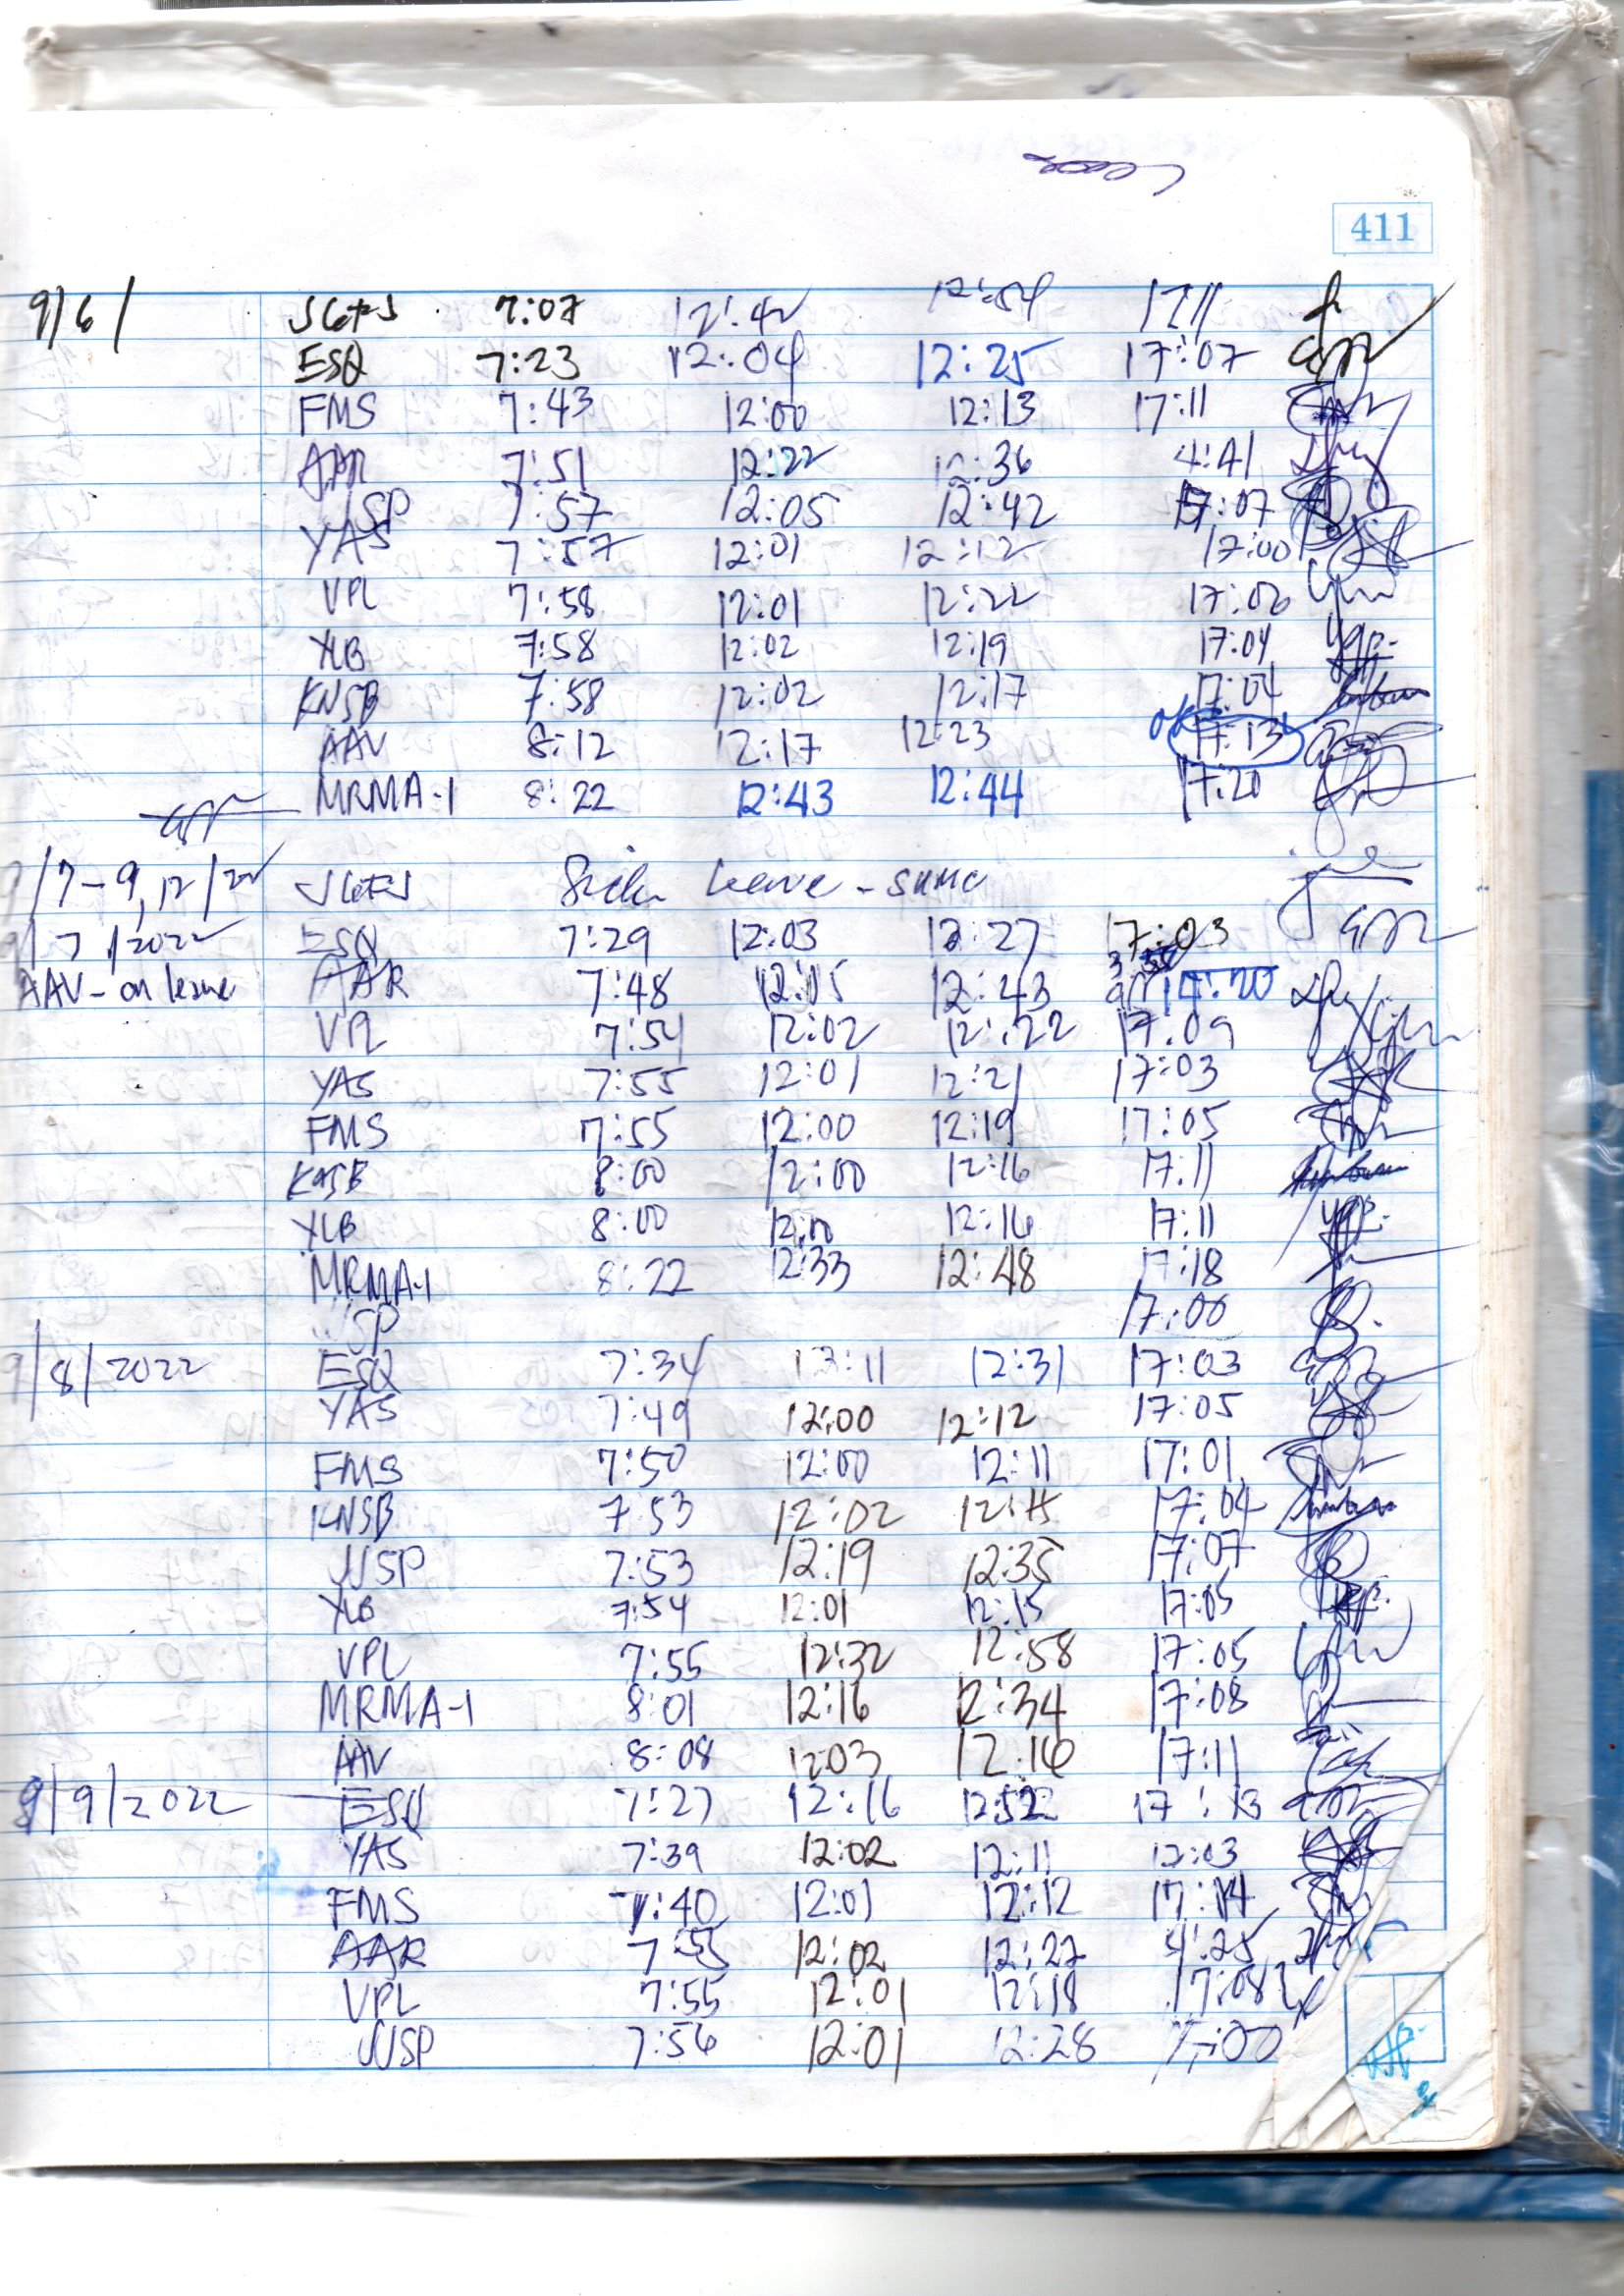 411
9/6/ 7:07 12:42 12:54 1711
ESQ 7:23 12:04 12:25 17:07
FMS 7:43 12:00 12:13 17:11
AAR 7:51 12:22 12:36 4:41
JSP 7:57 12:05 12:42 17:07
YAS 7:57 12:01 12:12 17:00
VPL 7:58 12:01 12:22 17:06
YLB 7:58 12:02 12:19 17:04
KNSB 7:58 12:02 12:17 17:04
AAV 8:12 12:17 12:23 OK 17:13
MRMA-1 8:22 12:43 12:44 17:20
9/7-9, 12/22 Sick leave -
9/7/2022 ESQ 7:29 12:03 12:27 17:03
AAV - on leave AAR 7:48 12:05 12:43
VPL 7:54 12:02 12:22 17:09
YAS 7:55 12:01 12:21 17:03
FMS 7:55 12:00 12:19 17:05
KNSB 8:00 12:00 12:16 17:11
YLB 8:00 12:10 12:16 17:11
MRMA-1 8:22 12:33 12:48 17:18
JSP 17:00
9/8/2022 ESQ 7:34 12:11 12:31 17:03
YAS 7:49 12:00 12:12 17:05
FMS 7:50 12:00 12:11 17:01
KNSB 7:53 12:02 12:15 17:04
JSP 7:53 12:19 12:35 17:07
YLB 7:54 12:01 12:15 17:05
VPL 7:55 12:32 12:58 17:05
MRMA-1 8:01 12:16 12:34 17:08
AAV 8:08 1203 12:16 17:11
9/9/2022 ESQ 7:27 12:16 12:52 17:13
YAS 7:39 12:02 12:11 17:03
FMS 7:40 12:01 12:12 17:14
AAR 7:55 12:02 12:27 4:25
VPL 7:55 12:01 12:18 17:08
JSP 7:56 12:01 12:28 17:00